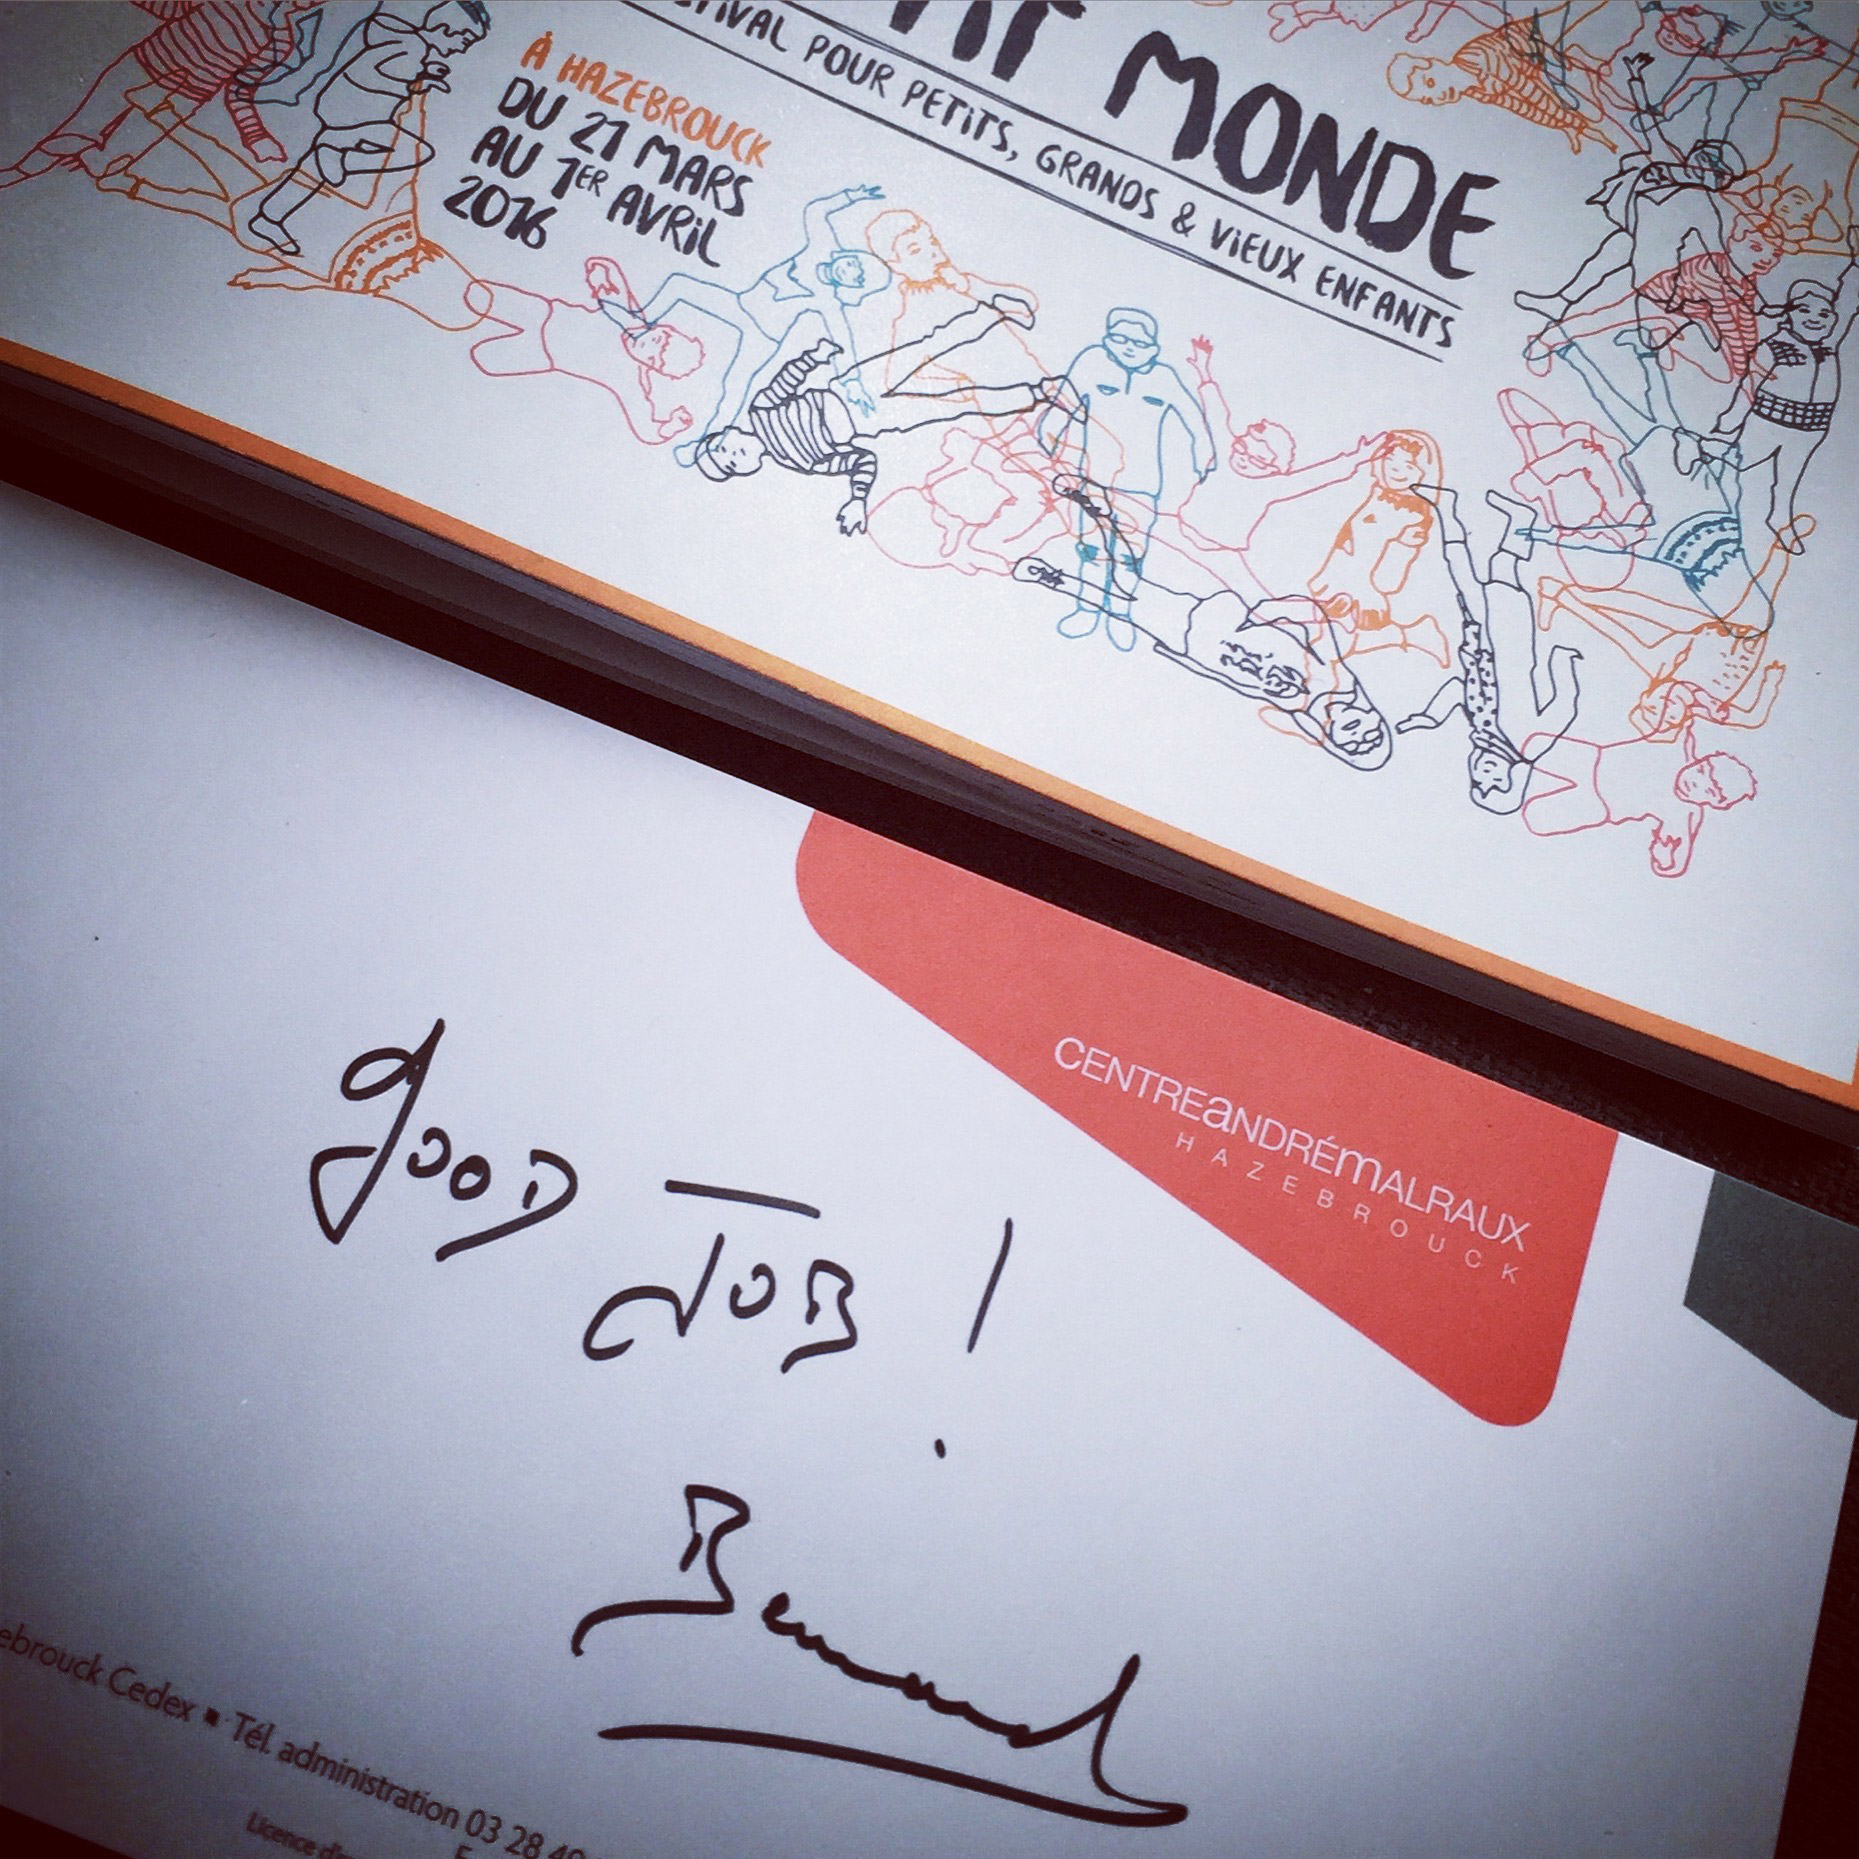 MONDE
POUR PETITS, GRANDS & VIEUX ENFANTS
À HAZEBROUCK
DU 21 MARS
AU 1ER AVRIL
2016
CENTREaNDRÉmALRAUX
HAZEBROUCK
gOOD JOB !
Bernard
ebrouck Cedex ▪ Tél. administration 03 28 49
Licence